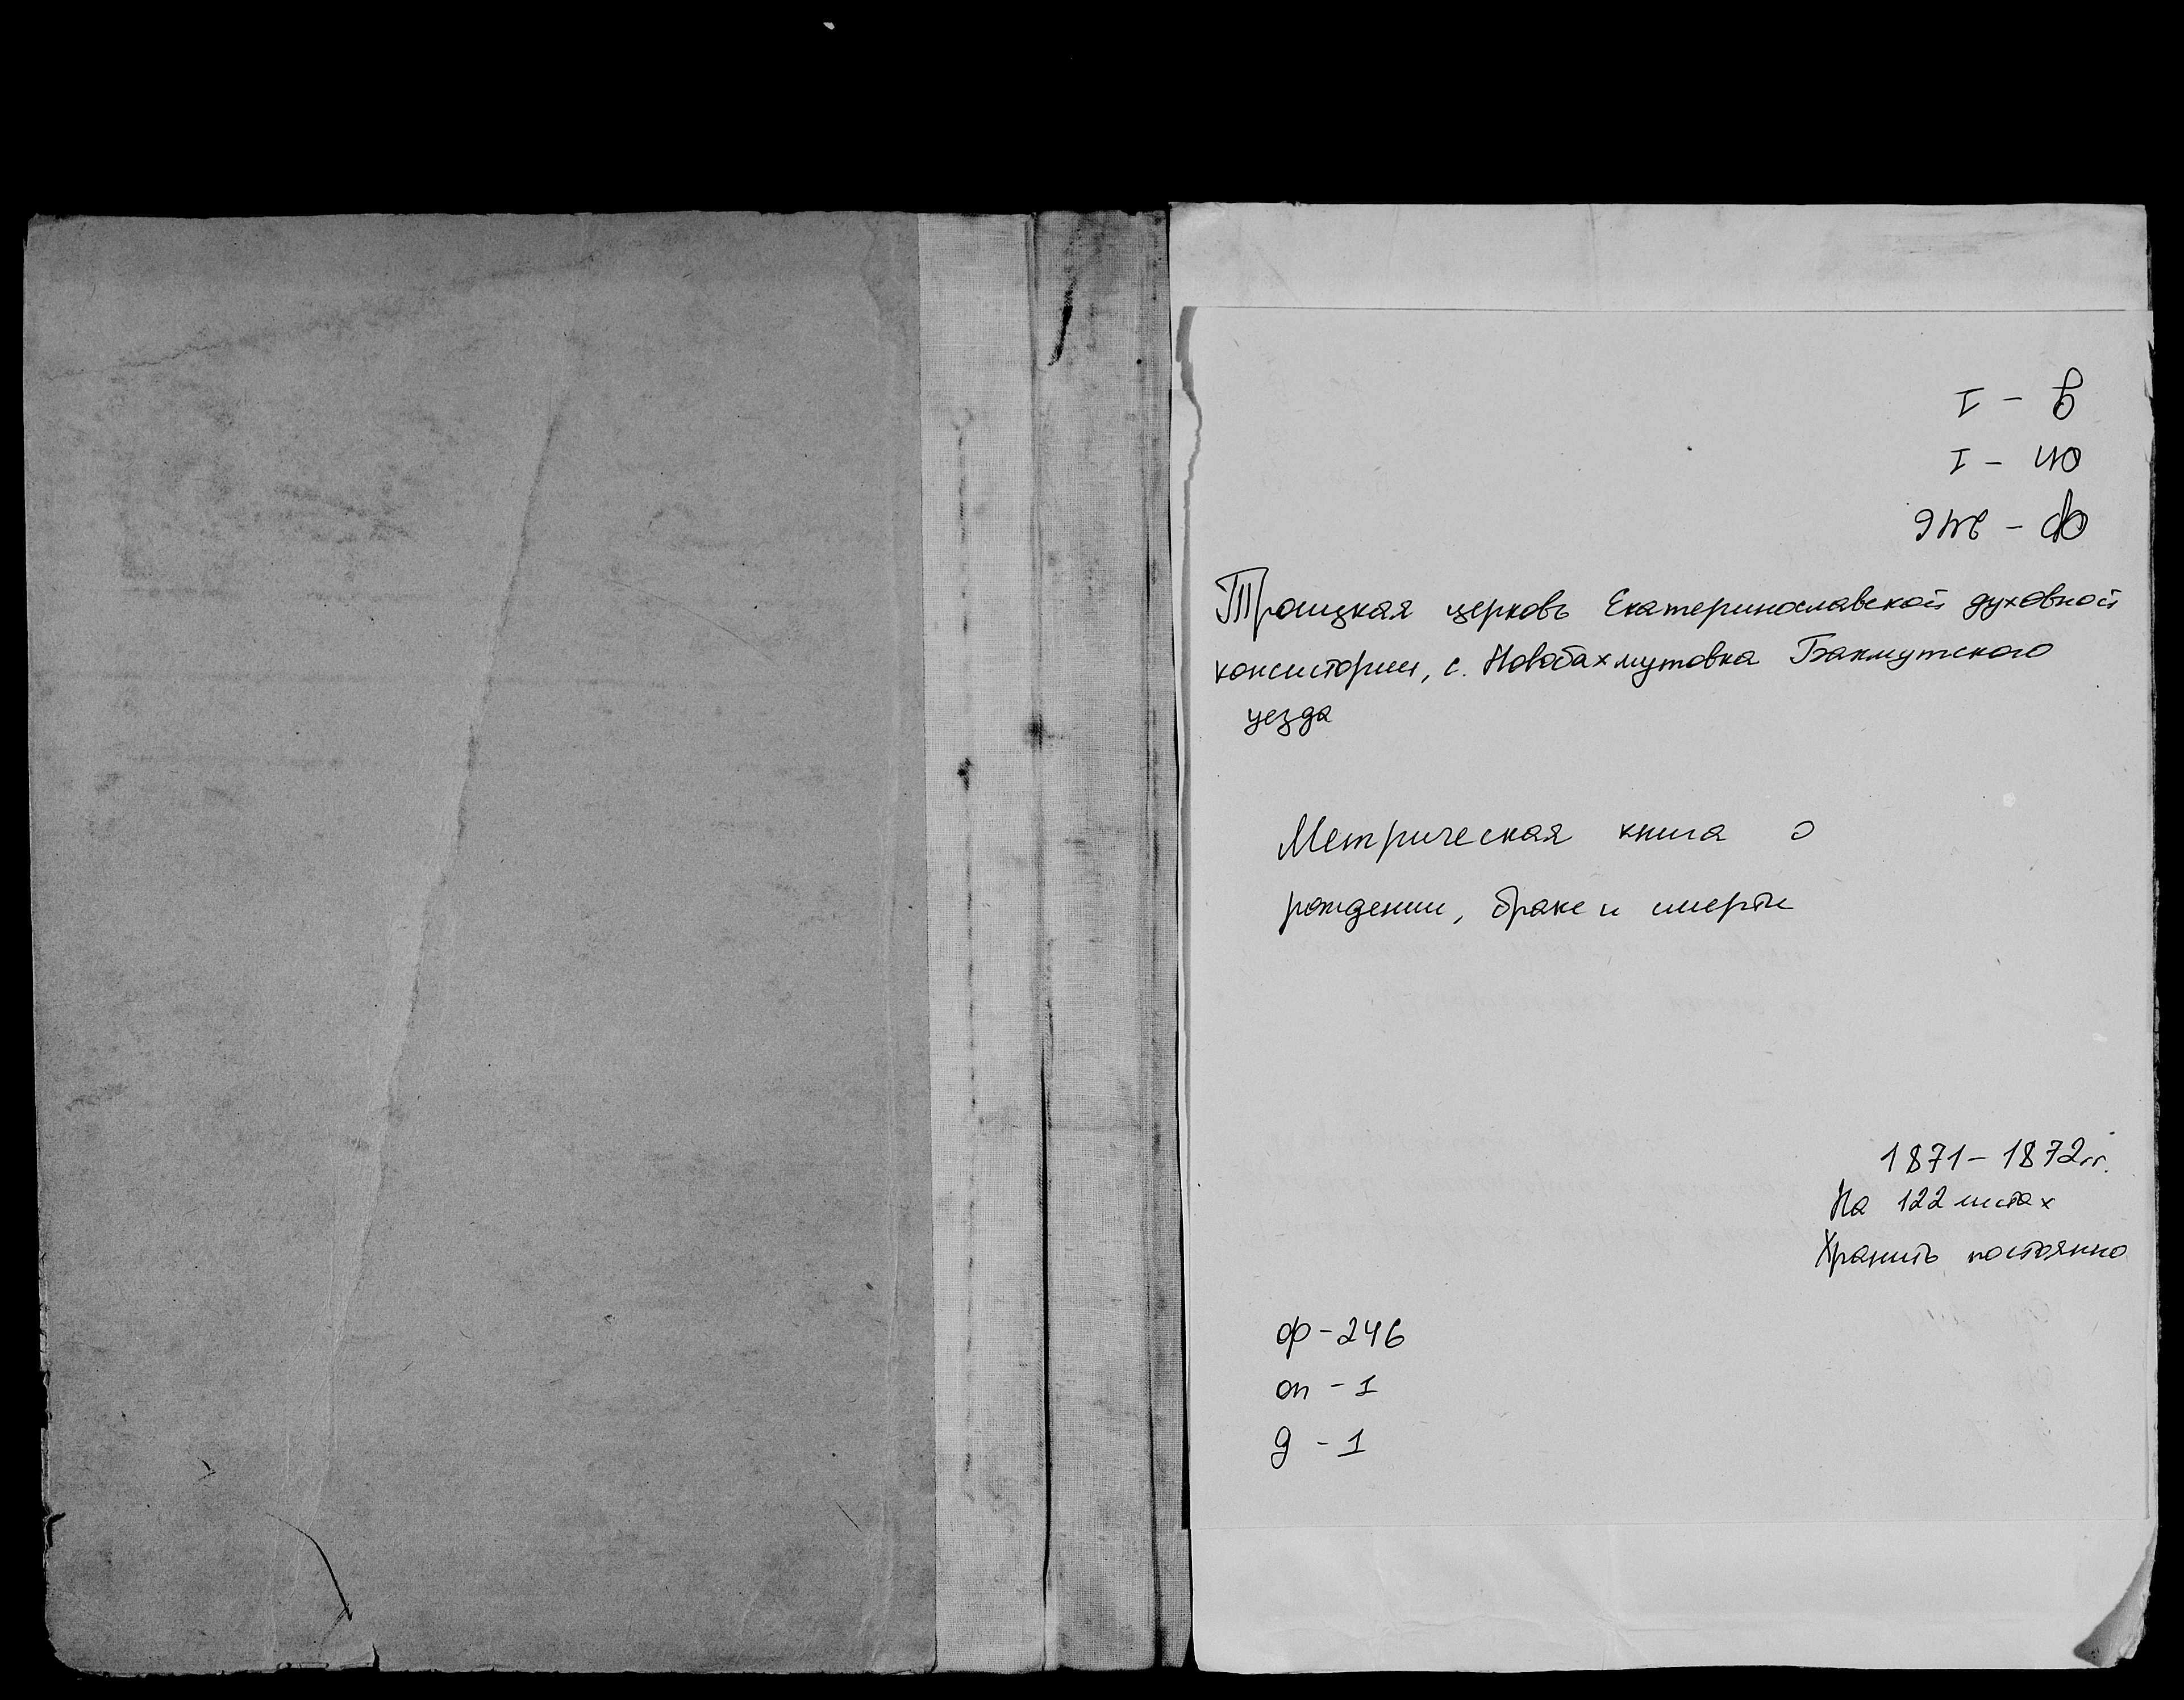 ф - 246
оп - 1
д - 1
Троицкая церковь Екатеринославской духовной
консистории, с. Новобахмутовка Бахмутского
уезда
Метрическая книга о
рождении, браке и смерти
1871 - 1872 гг.
На 122 листах
Хранить постоянно
ф - 246
оп - 1
д - 1